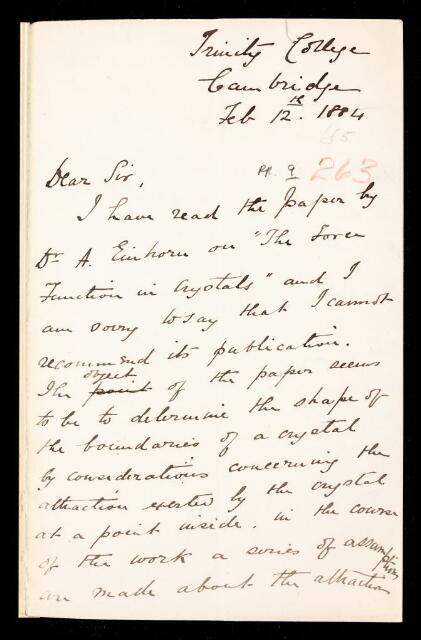 Trinity College
Cambridge
Feb 12th. 1884
RR. 9 263
Dear Sir,
I have read the paper by
Dr A. Einhorn on "The Force
Function in Crystals" and I
am sorry to say that I cannot
recommend its publication.
The point object of the paper seems
to be to determine the shape of
the boundaries of a crystal
by considerations concerning the
attraction exerted by the crystal
at a point inside. in the course
of the work a series of assumptions
are made about the attraction